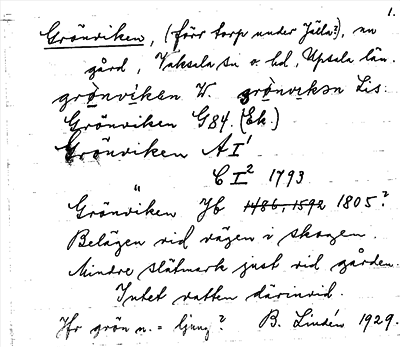 1.
Grönviken, (förr torp under Jälla?), nu
gård, Vaksala sn o. hd, Upsala län.
grònvìkən W. grònvɩkən Lis.
Grönviken G84. (Ek.)
Grönviken A I¹
C I² 1793
Grönviken Jb 1486, 1592 1805?
Belägen vid vägen i skogen.
Mindre slätmark just vid gården.
Intet vatten därinvid.
Jfr grön n. = ljung? B. Lindén 1929.